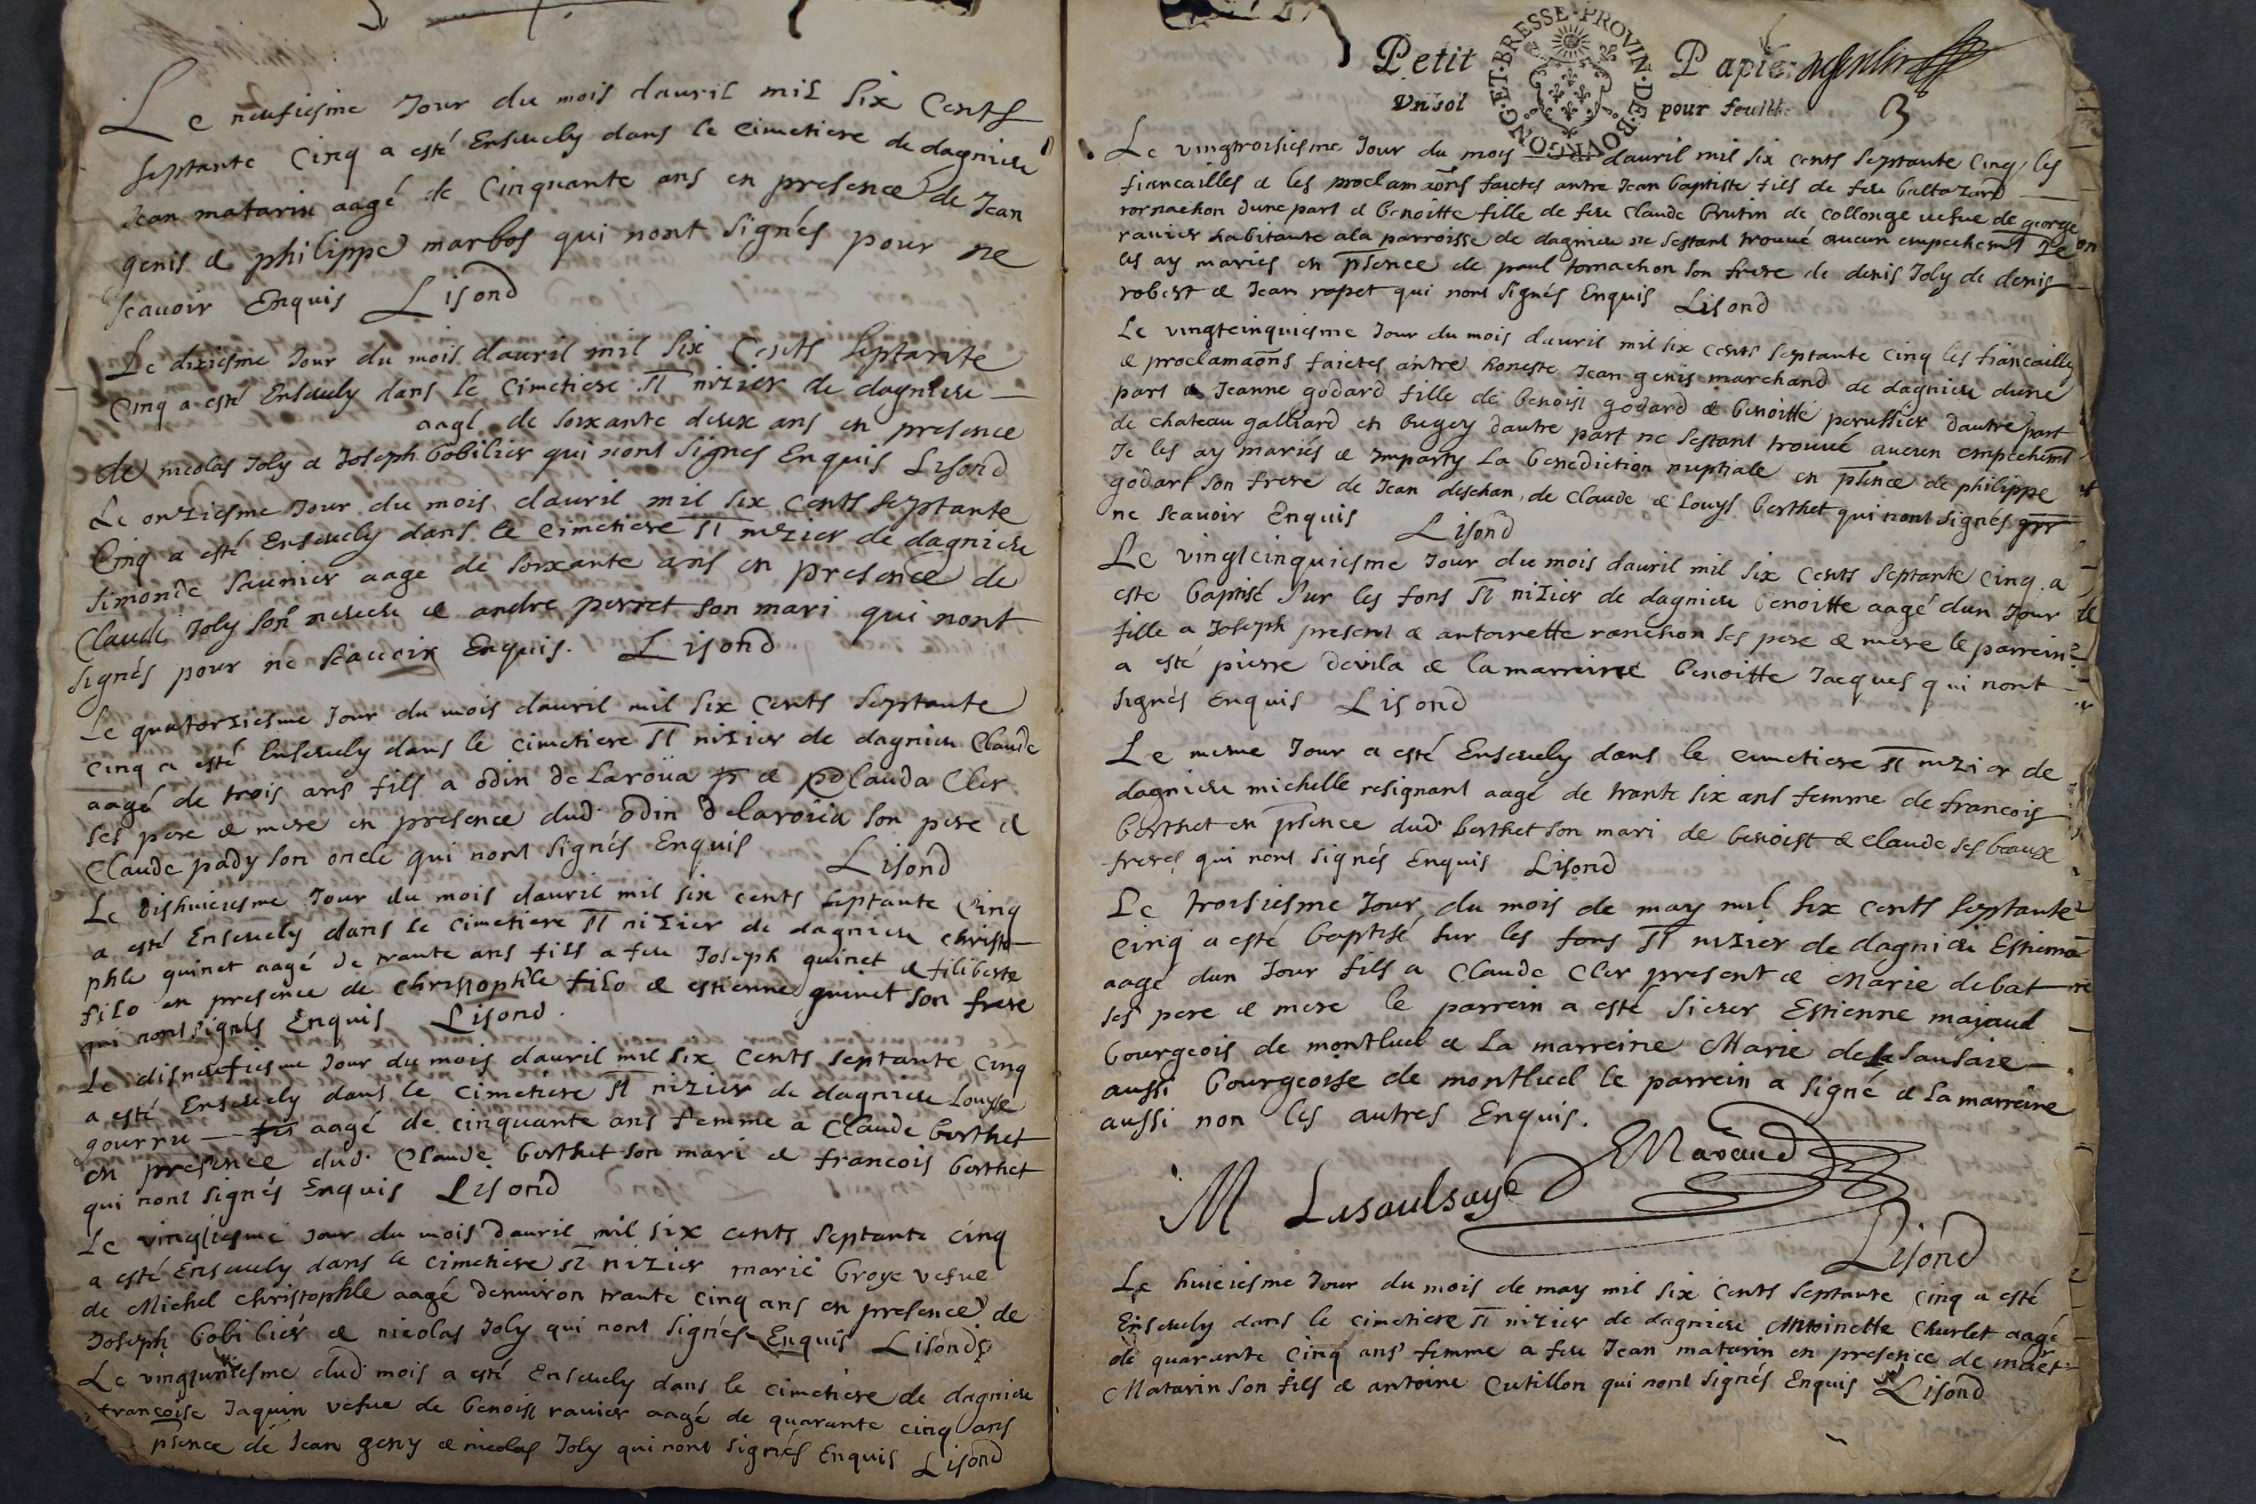 Le neufiesme Jour du mois dauril mil six Cents
septante Cinq a esté Enseuely dans le cimetiere de dagnieu
Jean matarin aagé de Cinquante ans en presence de Jean
genis & philippe marbos qui nont signés pour ne
scauoir Enquis Lisond
Le dixiesme Jour du mois dauril mil six Cents septante
Cinq a esté Enseuely dans le Cimetiere st nizier de dagnieu
aagé de soixante deux ans en presence
de nicolas Joly & Joseph bobilier qui nont signes Enquis Lisond
Le onziesme Jour du mois dauril mil six Cents septante
Cinq a esté Enseuely dans le cimetiere st nizier de dagnieu
simonde saunier aage de soixante ans en presence de
Claude Joly son neueu & andre perret son mari qui nont
signés pour ne scauoir Enquis. Lisond
Le quatorziesme Jour du mois dauril mil six Cents septante
cinq a esté Enseuely dans le cimetiere st nizier de dagnieu Claude
aagé de trois ans fils a odin de Laroüa & Clauda Cler
ses pere & mere en presence dud. odin delaroüa son pere &
Claude pady son oncle qui nont signés Enquis Lisond
Le dishuiciesme Jour du mois dauril mil six cents septante Cinq
a esté Enseuely dans le cimetiere st nizier de dagnieu christo
phle quinet aagé de trante ans fils a feu Joseph quinet & filiberte
filo en presence de christophle filo & estienne quinet son frere
qui nont signés Enquis Lisond.
Le disneufiesme Jour du mois dauril mil six Cents septante Cinq
a esté Enseuely dans le Cimetiere st nizier de dagnieu Louyse
gourru aagé de cinquante ans femme a Claude berthet
en presence dud. Claude berthet son mari & francois berthet
qui nont signés Enquis Lisond
Le vingtiesme Jour du mois dauril mil six cents septante cinq
a esté Enseuely dans le cimetiere st nizier marie broye vefue
de Michel christophle aagé denuiron trante cinq ans en presence de
Joseph bobilier & nicolas Joly qui nont signés Enquis Lisond
Le vingtuniesme dud. mois a esté Enseuely dans le cimetiere de dagnieu
francoise Jaquin vefue de benoist rauier aagé de quarante cinq ans
psence de Jean geny & nicolas Joly qui nont signés Enquis Lisond
Petit Papier
Vn sol pour feuille
BOVRGONG·ET·BRESSE·PROVIN·DE·
3
Le vingtroisiesme Jour du mois dauril mil six cents septante Cinq les
fiancailles & les proclamaons faictes antre Jean baptiste fils de feu baltazard
tornachon dune part & benoitte fille de feu Claude brutin de collonge uefue de george
rauier habitante a la parroisse de dagnieu ne sestant trouué aucun empechemt Je
les ay mariés en psence de paul tornachon son frere de denis Joly de denis
robert & Jean rapet qui nont signés Enquis Lisond
Le vingtcinquiesme Jour du mois dauril mil six cents septante cinq les fiancailles
& proclamaons faictes antre honeste Jean genis marchand de dagnieu dune
part & Jeanne godard fille de benoist godard & benoitte perussier dautre part
de chateau galliard en bugey dautre part ne sestant trouué aucun empechemt
Je les ay mariés & Imparty La benediction nuptiale en psence de philippe
godart son frere de Jean deschan, de Claude & Louys berthet qui nont signés pr
ne scauoir Enquis Lisond
Le vingtcinquiesme Jour du mois dauril mil six Cents septante cinq a
este baptisé sur les fons st nizier de dagnieu benoitte aagé dun Jour
fille a Joseph present & antoinette ranchon ses pere & mere le parrein
a esté pierre devila & la marreine benoitte Jacques qui nont
signés Enquis Lisond
Le mesme Jour a esté Enseuely dans le cimetiere st nizier de
dagnieu michelle resignant aagé de trante six ans femme de francois
berthet en psence dud. berthet son mari de benoist & claude ses beaux
freres qui nont signés Enquis Lisond
Le troisiesme Jour du mois de may mil six cents septante
Cinq a esté baptisé sur les fons st nizier de dagnieu Estienne
aagé dun Jour fils a Claude Cler present & Marie debat
ses pere & mere le parrein a esté sieur Estienne majaud
bourgeois de montluel & La marreine Marie de la sausaie
aussi bourgeoise de montluel le parrein a signé & la marreine
aussi non les autres Enquis.
M Lasaulsaye EMajaud
Lisond
Le huiciesme Jour du mois de may mil six Cents septante Cinq a esté
Enseuely dans le cimetiere st nizier de dagnieu Antoinette Churlet aagé
de quarante cinq ans femme a feu Jean matarin en presence de
Matarin son fils & antoine Cutillon qui nont signés Enquis Lisond